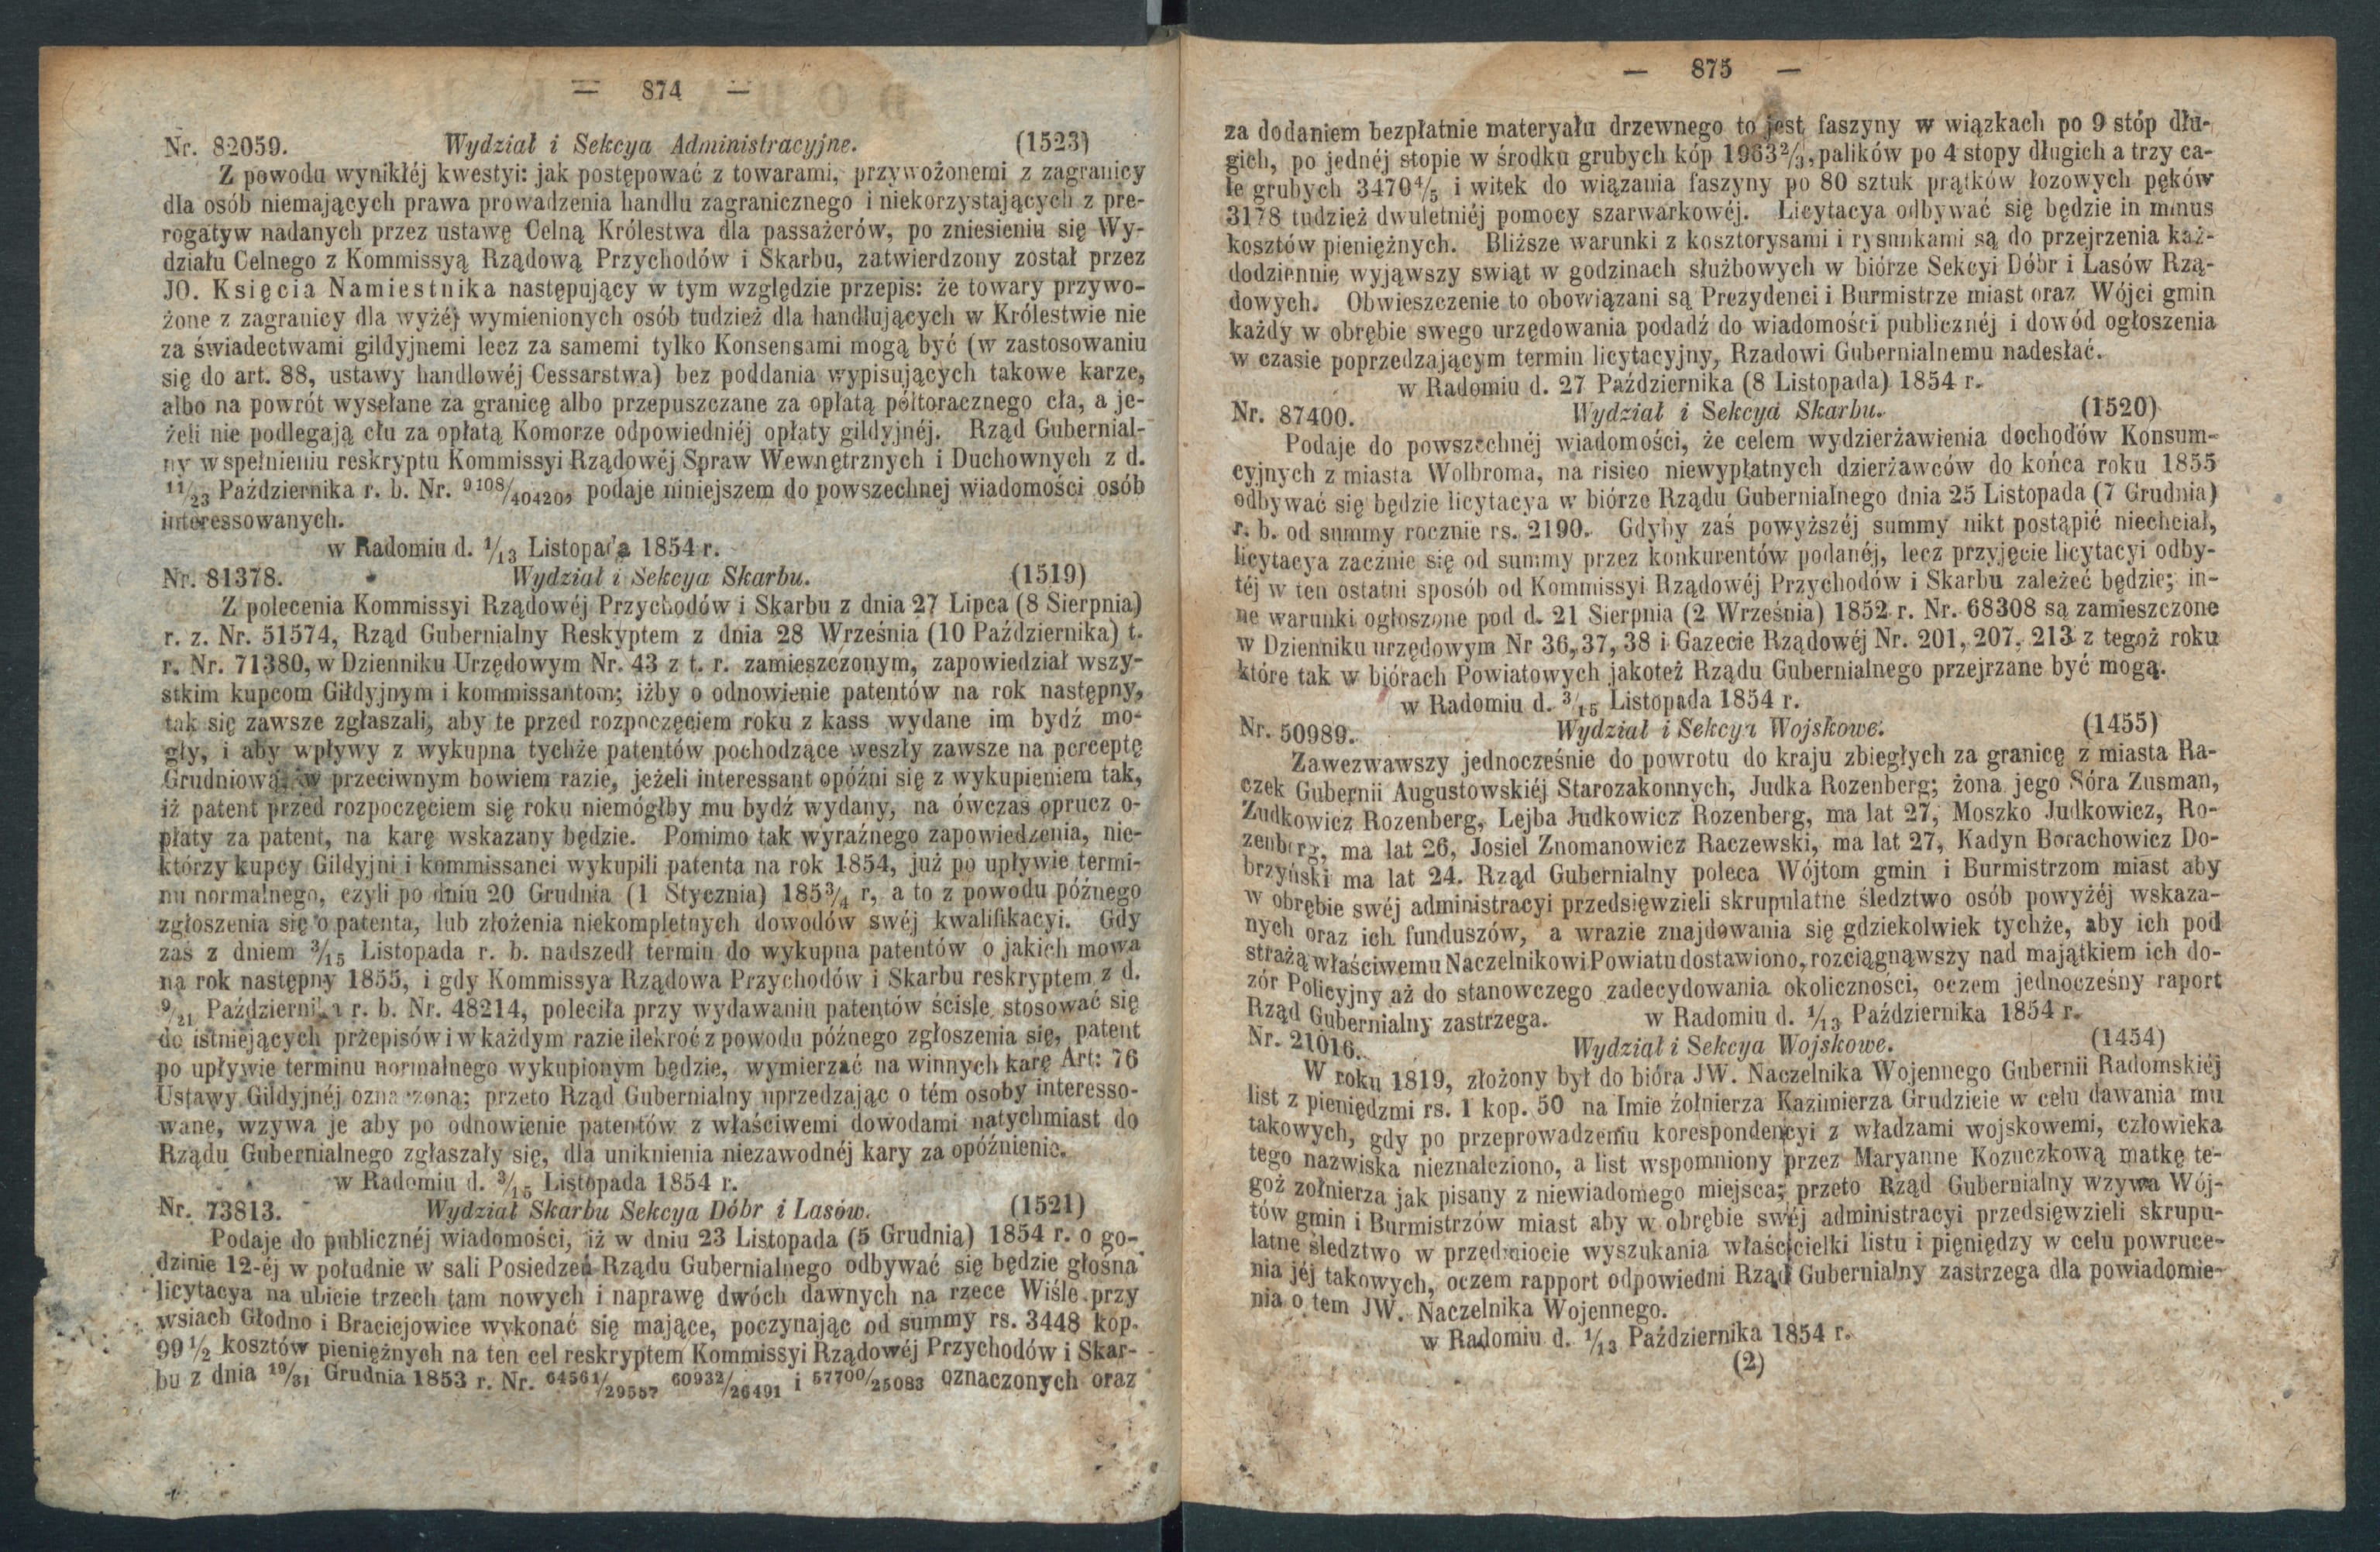 — 874 —
Nr. 82059. Wydział i Sekcya Administracyjne. (1523)
Z powodu wynikłéj kwestyi: jak postępować z towarami, przywożonemi z zagranicy
dla osób niemających prawa prowadzenia handlu zagranicznego i niekorzystających z pre-
rogatyw nadanych przez ustawę Celną Królestwa dla passażerów, po zniesieniu się Wy-
działu Celnego z Kommissyą Rządową Przychodów i Skarbu, zatwierdzony został przez
JO. Księcia Namiestnika następujący w tym względzie przepis: że towary przywo-
żone z zagranicy dla wyżéj wymienionych osób tudzież dla handlujących w Królestwie nie
za świadectwami gildyjnemi lecz za samemi tylko Konsensami mogą być (w zastosowaniu
się do art. 88, ustawy handlowéj Cessarstwa) bez poddania wypisujących takowe karze,
albo na powrót wysełane za granicę albo przepuszczane za opłatą półtoracznego cła, a je-
żeli nie podlegają cłu za opłatą Komorze odpowiedniéj opłaty gildyjnéj. Rząd Gubernial-
ny w spełnieniu reskryptu Kommissyi Rządowéj Spraw Wewnętrznych i Duchownych z d.
11/23 Października r. b. Nr. 9108/40420, podaje niniejszem do powszechnej wiadomości osób
interessowanych.
w Radomiu d. 1/13 Listopada 1854 r.
Nr. 81378. Wydział i Sekcya Skarbu. (1519)
Z polecenia Kommissyi Rządowéj Przychodów i Skarbu z dnia 27 Lipca (8 Sierpnia)
r. z. Nr. 51574, Rząd Gubernialny Reskyptem z dnia 28 Września (10 Października) t.
r. Nr. 71380, w Dzienniku Urzędowym Nr. 43 z t. r. zamieszczonym, zapowiedział wszy-
stkim kupcom Giłdyjnym i kommissantom; iżby o odnowienie patentów na rok następny,
tak się zawsze zgłaszali, aby te przed rozpoczęciem roku z kass wydane im bydź mo-
gły, i aby wpływy z wykupna tychże patentów pochodzące weszły zawsze na perceptę
Grudniową; w przeciwnym bowiem razie, jeżeli interessant opóźni się z wykupieniem tak,
iż patent przed rozpoczęciem się roku niemógłby mu bydź wydany, na ówczas oprucz o-
płaty za patent, na karę wskazany będzie. Pomimo tak wyraźnego zapowiedzenia, nie-
którzy kupcy Gildyjni i kommissanci wykupili patenta na rok 1854, już po upływie termi-
nu normalnego, czyli po dniu 20 Grudnia (1 Stycznia) 185¾ r, a to z powodu późnego
zgłoszenia się o patenta, lub złożenia niekompletnych dowodów swéj kwalifikacyi. Gdy
zaś z dniem 3/15 Listopada r. b. nadszedł termin do wykupna patentów o jakich mowa
na rok następny 1855, i gdy Kommissya Rządowa Przychodów i Skarbu reskryptem z d.
9/21 Października r. b. Nr. 48214, poleciła przy wydawaniu patentów ściśle stosować się
do istniejących przepisów i w każdym razie ilekroć z powodu późnego zgłoszenia się, patent
po upływie terminu normalnego wykupionym będzie, wymierzać na winnych karę Art: 76
Ustawy Gildyjnéj oznaczoną; przeto Rząd Gubernialny uprzedzając o tém osoby interesso-
wane, wzywa je aby po odnowienie patentów z właściwemi dowodami natychmiast do
Rządu Gubernialnego zgłaszały się, dla uniknienia niezawodnéj kary za opóźnienie.
w Radomiu d. 3/15 Listopada 1854 r.
Nr. 73813. Wydział Skarbu Sekcya Dóbr i Lasów. (1521)
Podaje do publicznéj wiadomości, iż w dniu 23 Listopada (5 Grudnia) 1854 r. o go-
dzinie 12-éj w południe w sali Posiedzeń Rządu Gubernialnego odbywać się będzie głośna
licytacya na ubicie trzech tam nowych i naprawę dwóch dawnych na rzece Wiśle przy
wsiach Głodno i Braciejowice wykonać się mające, poczynając od summy rs. 3448 kop.
99½ kosztów pieniężnych na ten cel reskryptem Kommissyi Rządowéj Przychodów i Skar-
bu z dnia 19/31 Grudnia 1853 r. Nr. 64561/29557 60932/26491 i 57700/25083 oznaczonych oraz
— 875 —
za dodaniem bezpłatnie materyału drzewnego to jest faszyny w wiązkach po 9 stóp dłu-
gich, po jednéj stopie w środku grubych kóp 1963⅔, palików po 4 stopy długich a trzy ca-
le grubych 3470⅘ i witek do wiązania faszyny po 80 sztuk prątków łozowych pęków
3178 tudzież dwuletniéj pomocy szarwarkowéj. Licytacya odbywać się będzie in minus
kosztów pieniężnych. Bliższe warunki z kosztorysami i rysunkami są do przejrzenia każ-
dodziennie wyjąwszy swiąt w godzinach służbowych w biórze Sekcyi Dóbr i Lasów Rzą-
dowych. Obwieszczenie to obowiązani są Prezydenci i Burmistrze miast oraz Wójci gmin
każdy w obrębie swego urzędowania podadź do wiadomości publicznéj i dowód ogłoszenia
w czasie poprzedzającym termin licytacyjny, Rzadowi Gubernialnemu nadesłać.
w Radomiu d. 27 Października (8 Listopada) 1854 r.
Nr. 87400. Wydział i Sekcya Skarbu. (1520)
Podaje do powszechnéj wiadomości, że celem wydzierżawienia dochodów Konsum-
cyjnych z miasta Wolbroma, na risico niewypłatnych dzierżawców do końca roku 1855
odbywać się będzie licytacya w biórze Rządu Gubernialnego dnia 25 Listopada (7 Grudnia)
r. b. od summy rocznie rs. 2190. Gdyby zaś powyższéj summy nikt postąpić niechciał,
licytacya zacznie się od summy przez konkurentów podanéj, lecz przyjęcie licytacyi odby-
téj w ten ostatni sposób od Kommissyi Rządowéj Przychodów i Skarbu zależeć będzie; in-
ne warunki ogłoszone pod d. 21 Sierpnia (2 Września) 1852 r. Nr. 68308 są zamieszczone
w Dzienniku urzędowym Nr 36, 37, 38 i Gazecie Rządowéj Nr. 201, 207, 213 z tegoż roku
które tak w biórach Powiatowych jakoteż Rządu Gubernialnego przejrzane być mogą.
w Radomiu d. 3/15 Listopada 1854 r.
Nr. 50989. Wydział i Sekcya Wojskowe. (1455)
Zawezwawszy jednocześnie do powrotu do kraju zbiegłych za granicę z miasta Ra-
czek Gubernii Augustowskiéj Starozakonnych, Judka Rozenberg; żona jego Sóra Zusman,
Zudkowicz Rozenberg, Lejba Judkowicz Rozenberg, ma lat 27, Moszko Judkowicz, Ro-
zenberg, ma lat 26, Josiel Znomanowicz Raczewski, ma lat 27, Kadyn Borachowicz Do-
brzyński ma lat 24. Rząd Gubernialny poleca Wójtom gmin i Burmistrzom miast aby
w obrębie swéj administracyi przedsięwzieli skrupulatne śledztwo osób powyżéj wskaza-
nych oraz ich funduszów, a wrazie znajdowania się gdziekolwiek tychże, aby ich pod
strażą właściwemu Naczelnikowi Powiatu dostawiono, rozciągnąwszy nad majątkiem ich do-
zór Policyjny aż do stanowczego zadecydowania okoliczności, oczem jednocześny raport
Rząd Gubernialny zastrzega. w Radomiu d. 1/13 Października 1854 r.
Nr. 21016. Wydział i Sekcya Wojskowe. (1454)
W roku 1819, złożony był do bióra JW. Naczelnika Wojennego Gubernii Radomskiéj
list z pieniędzmi rs. 1 kop. 50 na Imie żołnierza Kazimierza Grudzieie w celu dawania mu
takowych, gdy po przeprowadzeniu korespondencyi z władzami wojskowemi, człowieka
tego nazwiska nieznaleziono, a list wspomniony przez Maryanne Kozuczkową matkę te-
goż zołnierza jak pisany z niewiadomego miejsca; przeto Rząd Gubernialny wzywa Wój-
tów gmin i Burmistrzów miast aby w obrębie swéj administracyi przedsięwzieli skrupu-
latne śledztwo w przedmiocie wyszukania właścicielki listu i pieniędzy w celu powruce-
nia jéj takowych, oczem rapport odpowiedni Rząd Gubernialny zastrzega dla powiadomie-
nia o tem JW. Naczelnika Wojennego.
w Radomiu d. 1/13 Października 1854 r.
(2)